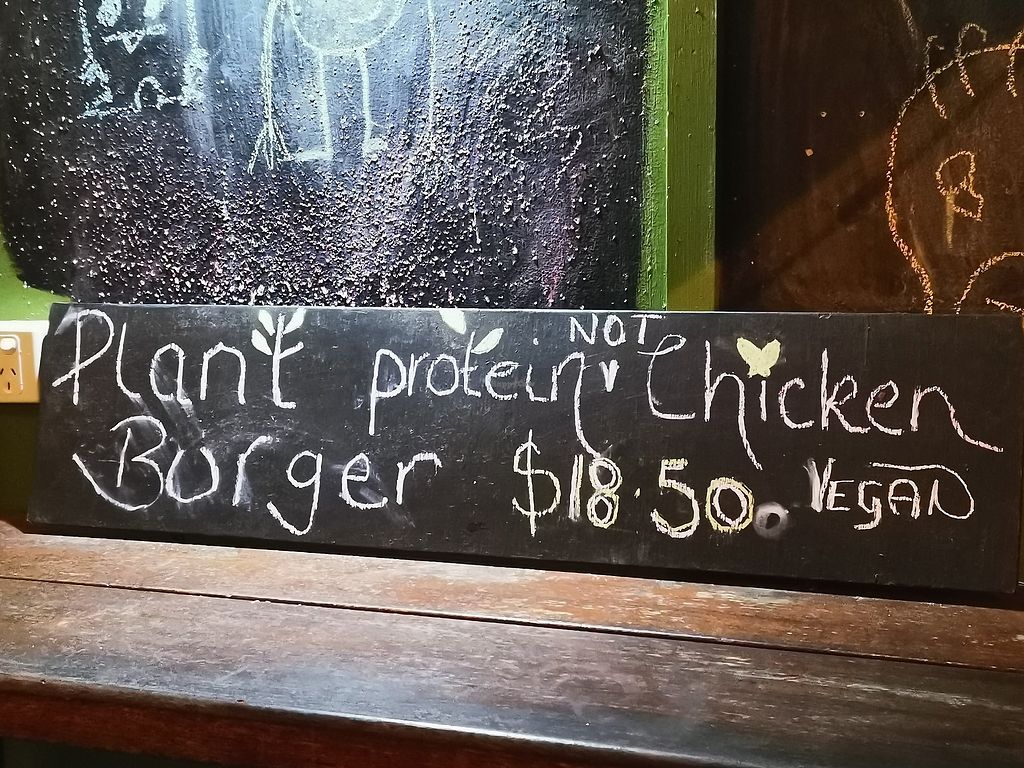 Plant protein NOT Chicken
Burger $18.50. VEGAN